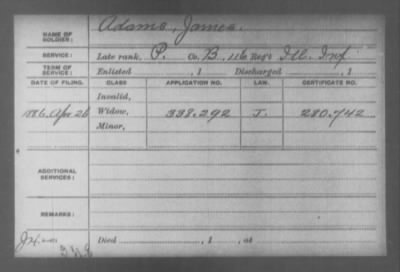 NAME OF SOLDIER: Adams, James.
SERVICE: Late rank, P. Co. B, 116 Reg't Ill. Inf
TERM OF SERVICE: Enlisted , 1 Discharged , 1
DATE OF FILING. CLASS APPLICATION NO. LAW. CERTIFICATE NO.
Invalid,
1886, Apr 26 Widow, 338.292 J. 280.742
Minor,
ADDITIONAL SERVICES:
REMARKS:
Died , 1 , at